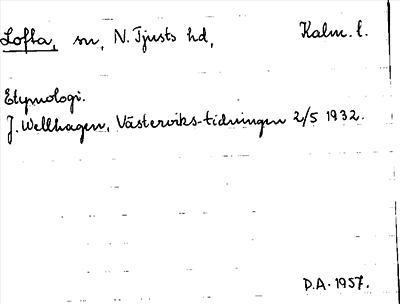 Lofta, sn, N. Tjusts hd, Kalm. l.
Etymologi.
J. Wellhagen, Västerviks-tidningen 2/5 1932.
D.A. 1957.